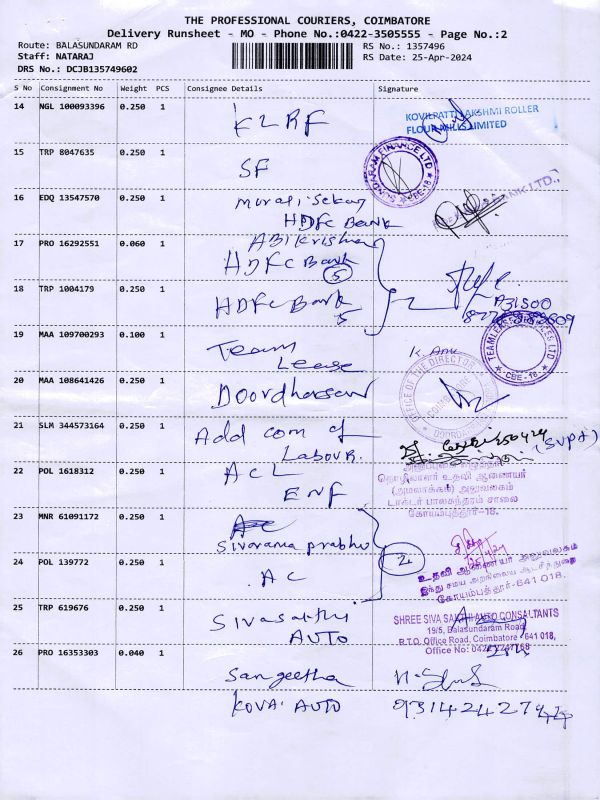 THE PROFESSIONAL COURIERS, COIMBATORE
Delivery Runsheet - MO - Phone No.:0422-3505555 - Page No.:2
Route: BALASUNDARAM RD
RS No.: 1357496
Staff: NATARAJ
RS Date: 25-Apr-2024
DRS No.: DCJB135749602
S No Consignment No Weight PCS Consignee Details Signature
14 NGL 100093396 0.250 1 KLRF
KOVILPATTI LAKSHMI ROLLER
FLOUR MILLS LIMITED
15 TRP 8047635 0.250 1 SF
SUNDARAM FINANCE LTD
CBE-18
16 EDQ 13547570 0.250 1 Murali Sekar
HDFC Bank
BANK LTD.
17 PRO 16292551 0.060 1 Abi Krishna
HDFC Bank
5
18 TRP 1004179 0.250 1 HDFC Bank
5
19 MAA 109700293 0.100 1 Team
Lease
TEAMLEASE SERVICES LTD
CBE-18
20 MAA 108641426 0.250 1 Doordharsan
OFFICE OF THE DIRECTOR
21 SLM 344573164 0.250 1 Add com of
Labour.
(SVPA)
22 POL 1618312 0.250 1 ACL
ENF
தொழிலாளர் உதவி ஆணையர்
(அமலாக்கம்) அலுவலகம்
டாக்டர் பாலசுந்தரம் சாலை
கோயம்புத்தூர்-18.
23 MNR 61091172 0.250 1
Sivarama prabhu
2
24 POL 139772 0.250 1 AC
உதவி ஆணையர் அலுவலகம்
இந்து சமய அறநிலைய ஆட்சித்துறை
கோயம்புத்தூர்-641 018.
25 TRP 619676 0.250 1 Sivasakthi
AUTO
SHREE SIVA SAKTHI AUTO CONSULTANTS
19/5, Balasundaram Road,
R.T.O. Office Road, Coimbatore - 641 018,
Office No:
26 PRO 16353303 0.040 1 Sangeetha
KOVAI AUTO